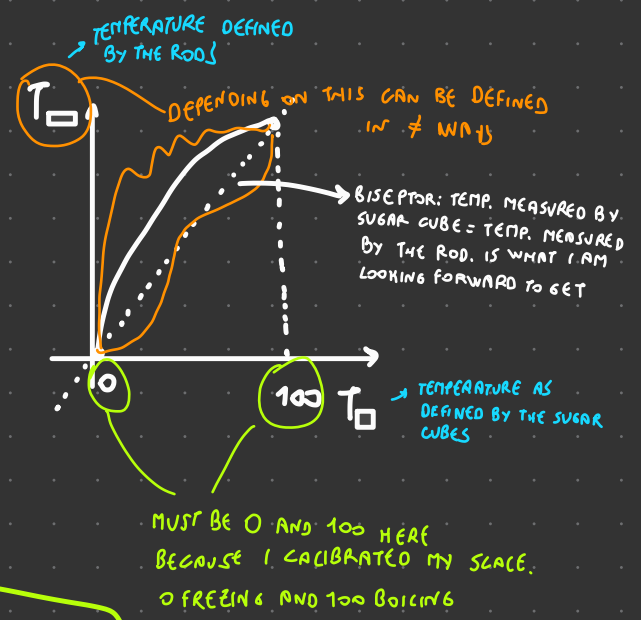 TEMPERATURE DEFINED
BY THE RODS
T▭
DEPENDING ON THIS CAN BE DEFINED
IN ≠ WAYS
BISECTOR: TEMP. MEASURED BY
SUGAR CUBE = TEMP. MEASURED
BY THE ROD. IS WHAT I AM
LOOKING FORWARD TO GET
0
100
T□
TEMPERATURE AS
DEFINED BY THE SUGAR
CUBES
MUST BE 0 AND 100 HERE
BECAUSE I CALIBRATED MY SCALE.
0 FREZING AND 100 BOILING